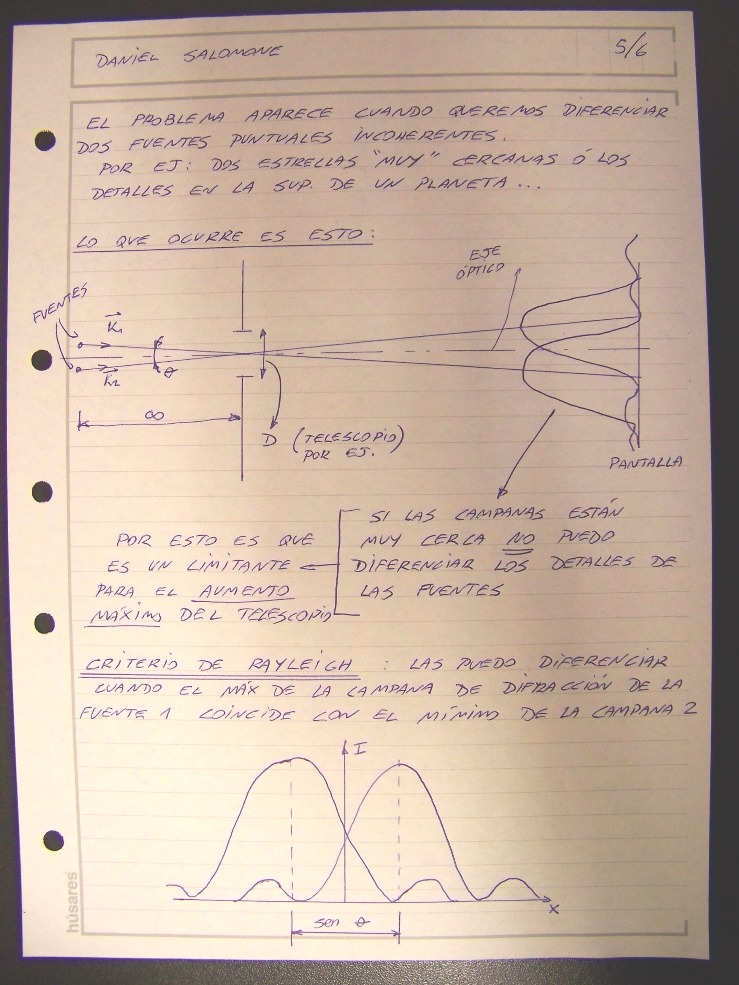 DANIEL SALOMONE
5/6
EL PROBLEMA APARECE CUANDO QUEREMOS DIFERENCIAR
DOS FUENTES PUNTUALES INCOHERENTES.
POR EJ: DOS ESTRELLAS "MUY" CERCANAS Ó LOS
DETALLES EN LA SUP. DE UN PLANETA...
LO QUE OCURRE ES ESTO:
EJE
ÓPTICO
FUENTES
K1
θ
K2
∞
D (TELESCOPIO
POR EJ.)
PANTALLA
SI LAS CAMPANAS ESTÁN
MUY CERCA NO PUEDO
DIFERENCIAR LOS DETALLES DE
LAS FUENTES
POR ESTO ES QUE
ES UN LIMITANTE
PARA EL AUMENTO
MÁXIMO DEL TELESCOPIO
CRITERIO DE RAYLEIGH : LAS PUEDO DIFERENCIAR
CUANDO EL MÁX DE LA CAMPANA DE DIFRACCIÓN DE LA
FUENTE 1 COINCIDE CON EL MÍNIMO DE LA CAMPANA 2
I
x
sen θ
húsares